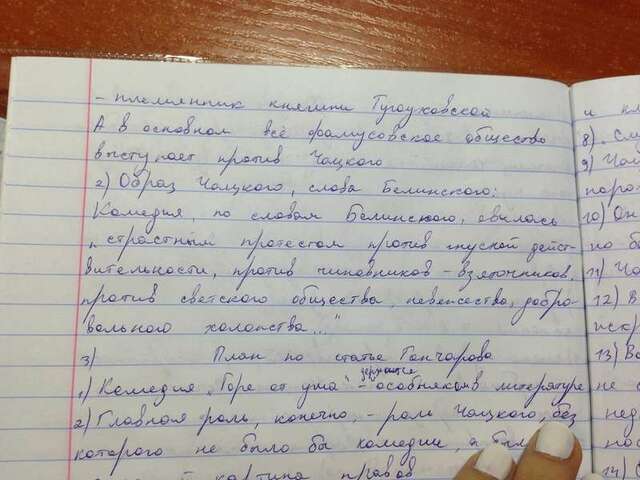 - племянник княгини Тугоуховской
А в основном всё фамусовское общество
выступает против Чацкого
2) Образ Чацкого, слова Белинского:
Комедия, по словам Белинского, явилась
"страстным протестом против гнусной дейст-
вительности, против чиновников - взяточников,
против светского общества, невежества, добро-
вольного холопства..."
3) План по статье Гончарова
1) Комедия "Горе от ума" - держится особняком в литературе
2) Главная роль, конечно, - роль Чацкого, без
которого не было бы комедии, а была
картина нравов
и
8). Сл
9) Чац
поро
10) Он
но б
11) Ча
12) В
13) Во
не
нед
пос
14)